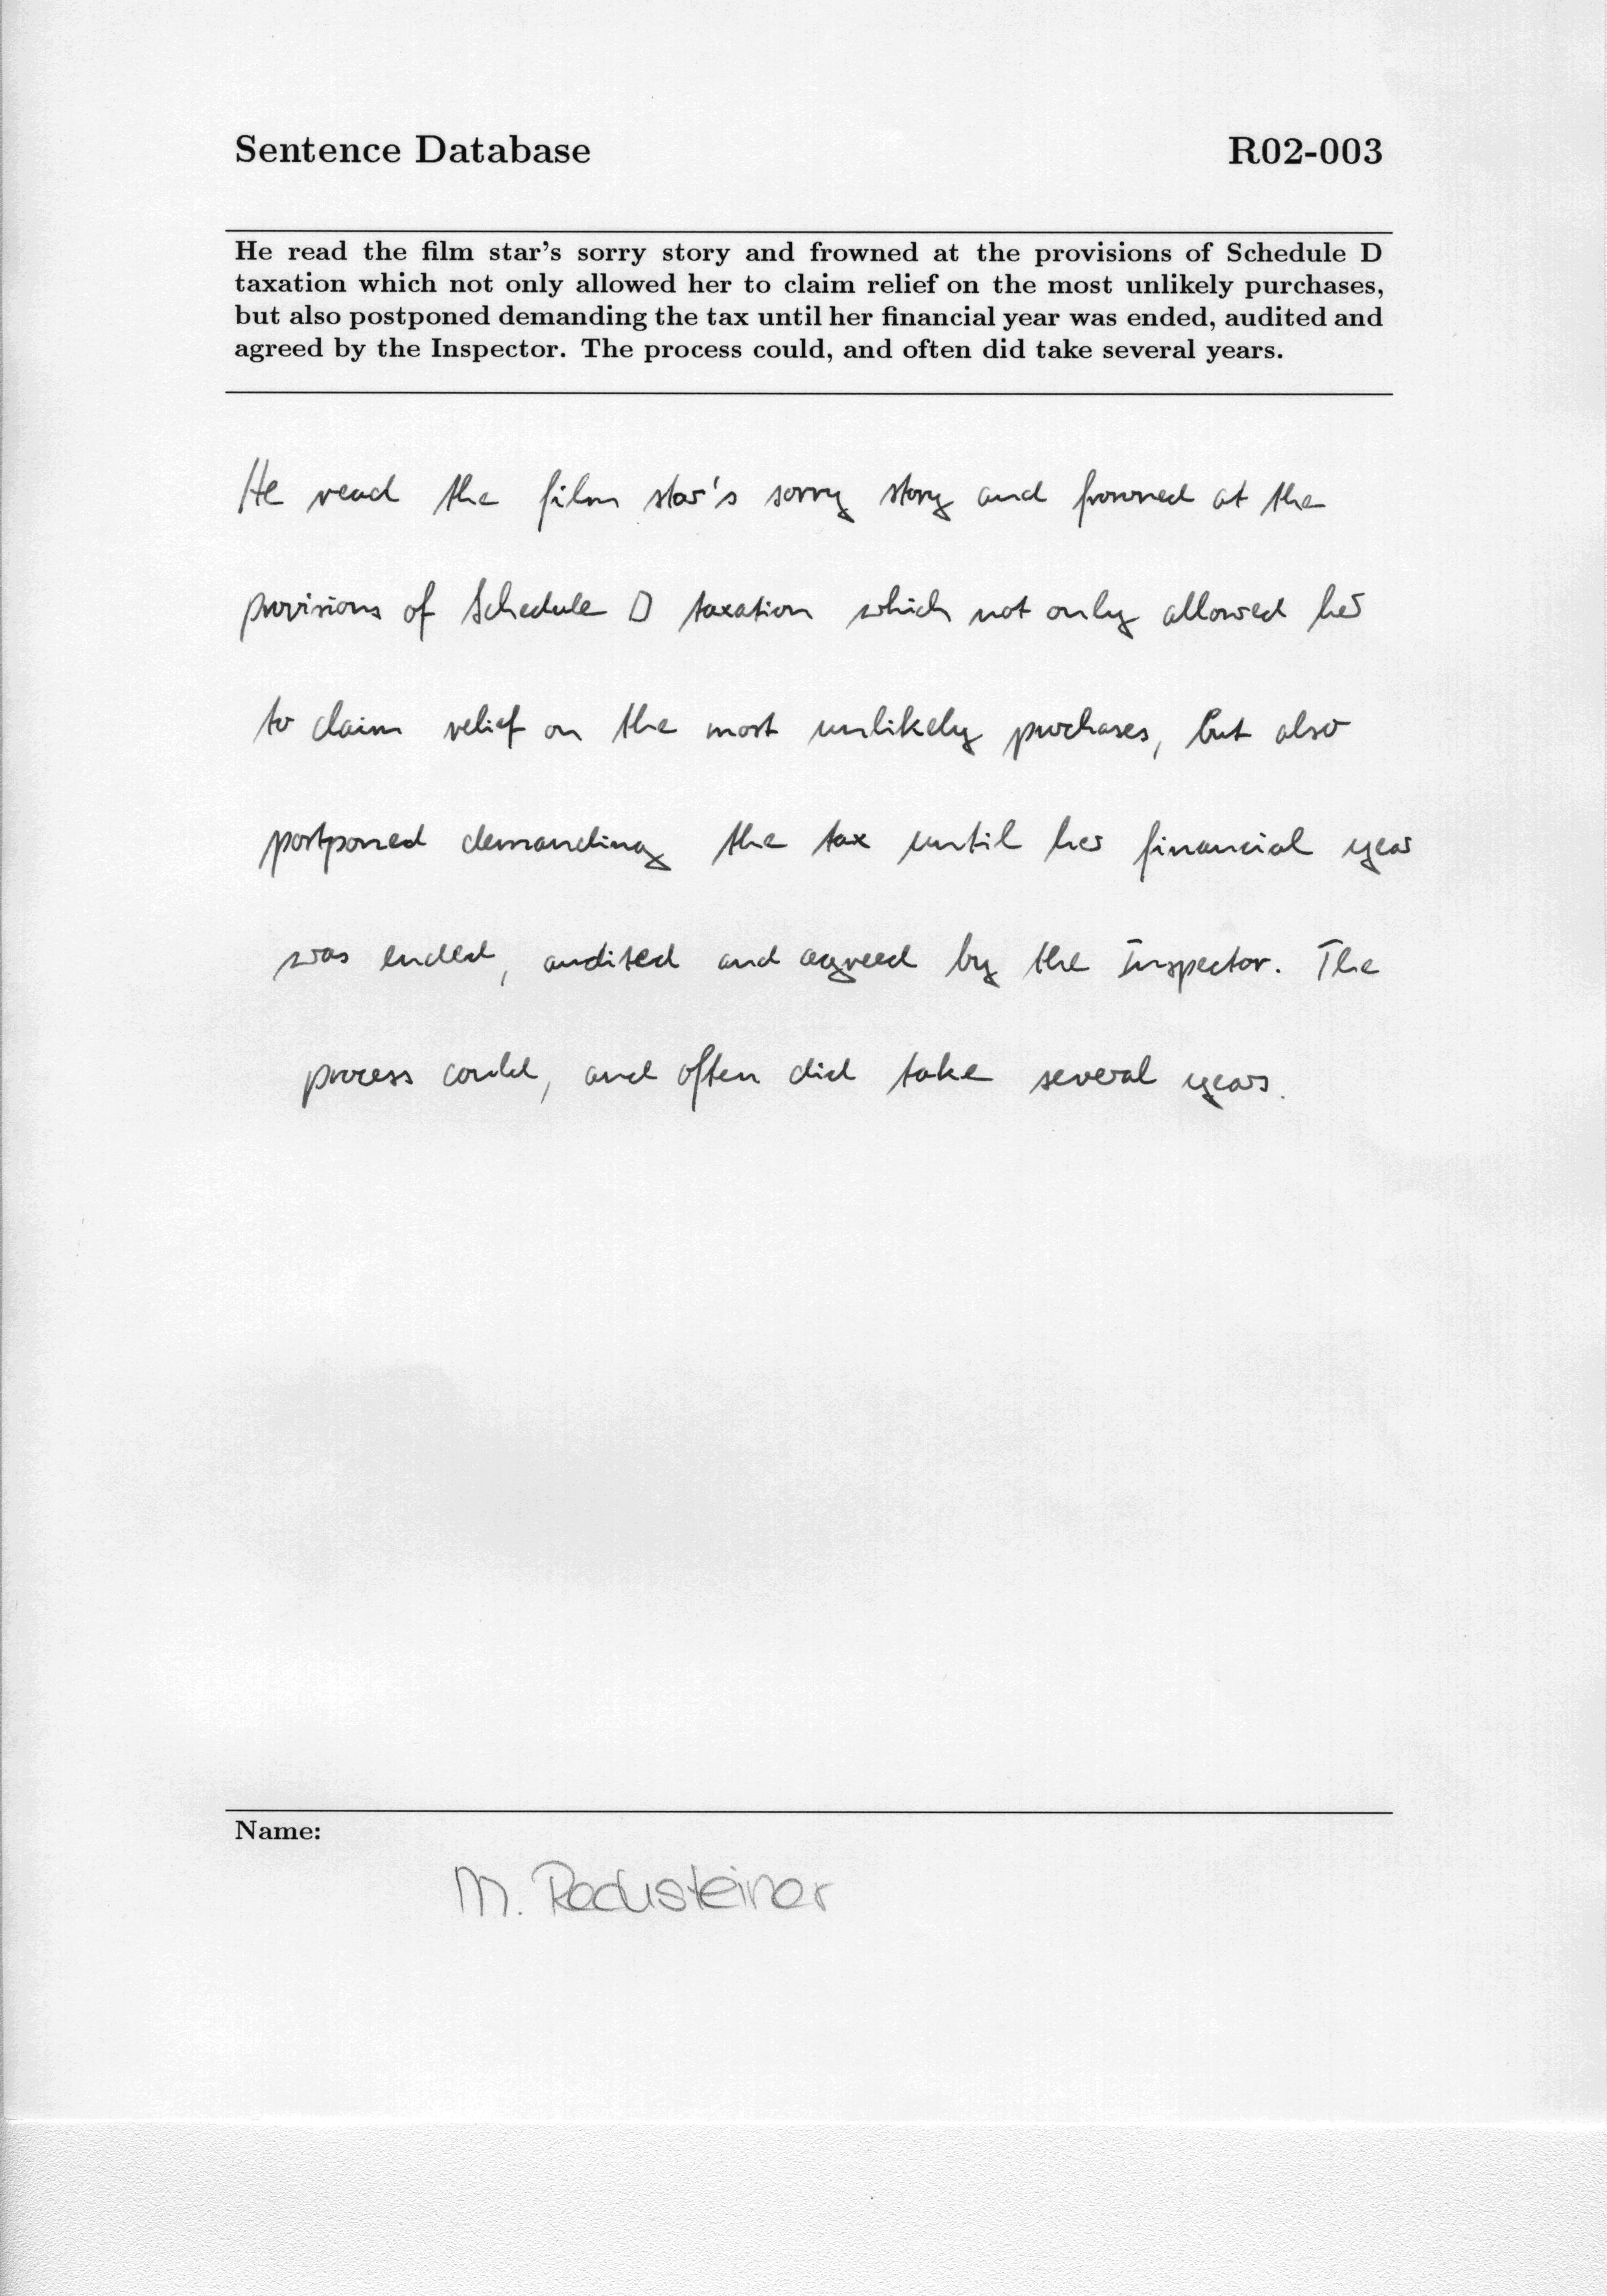 Sentence Database R02-003
He read the film star's sorry story and frowned at the provisions of Schedule D
taxation which not only allowed her to claim relief on the most unlikely purchases,
but also postponed demanding the tax until her financial year was ended, audited and
agreed by the Inspector. The process could, and often did take several years.
He read the film star's sorry story and frowned at the
provisions of Schedule D taxation which not only allowed her
to claim relief on the most unlikely purchases, but also
postponed demanding the tax until her financial year
was ended, audited and agreed by the Inspector. The
process could, and often did take several years.
Name:
M.